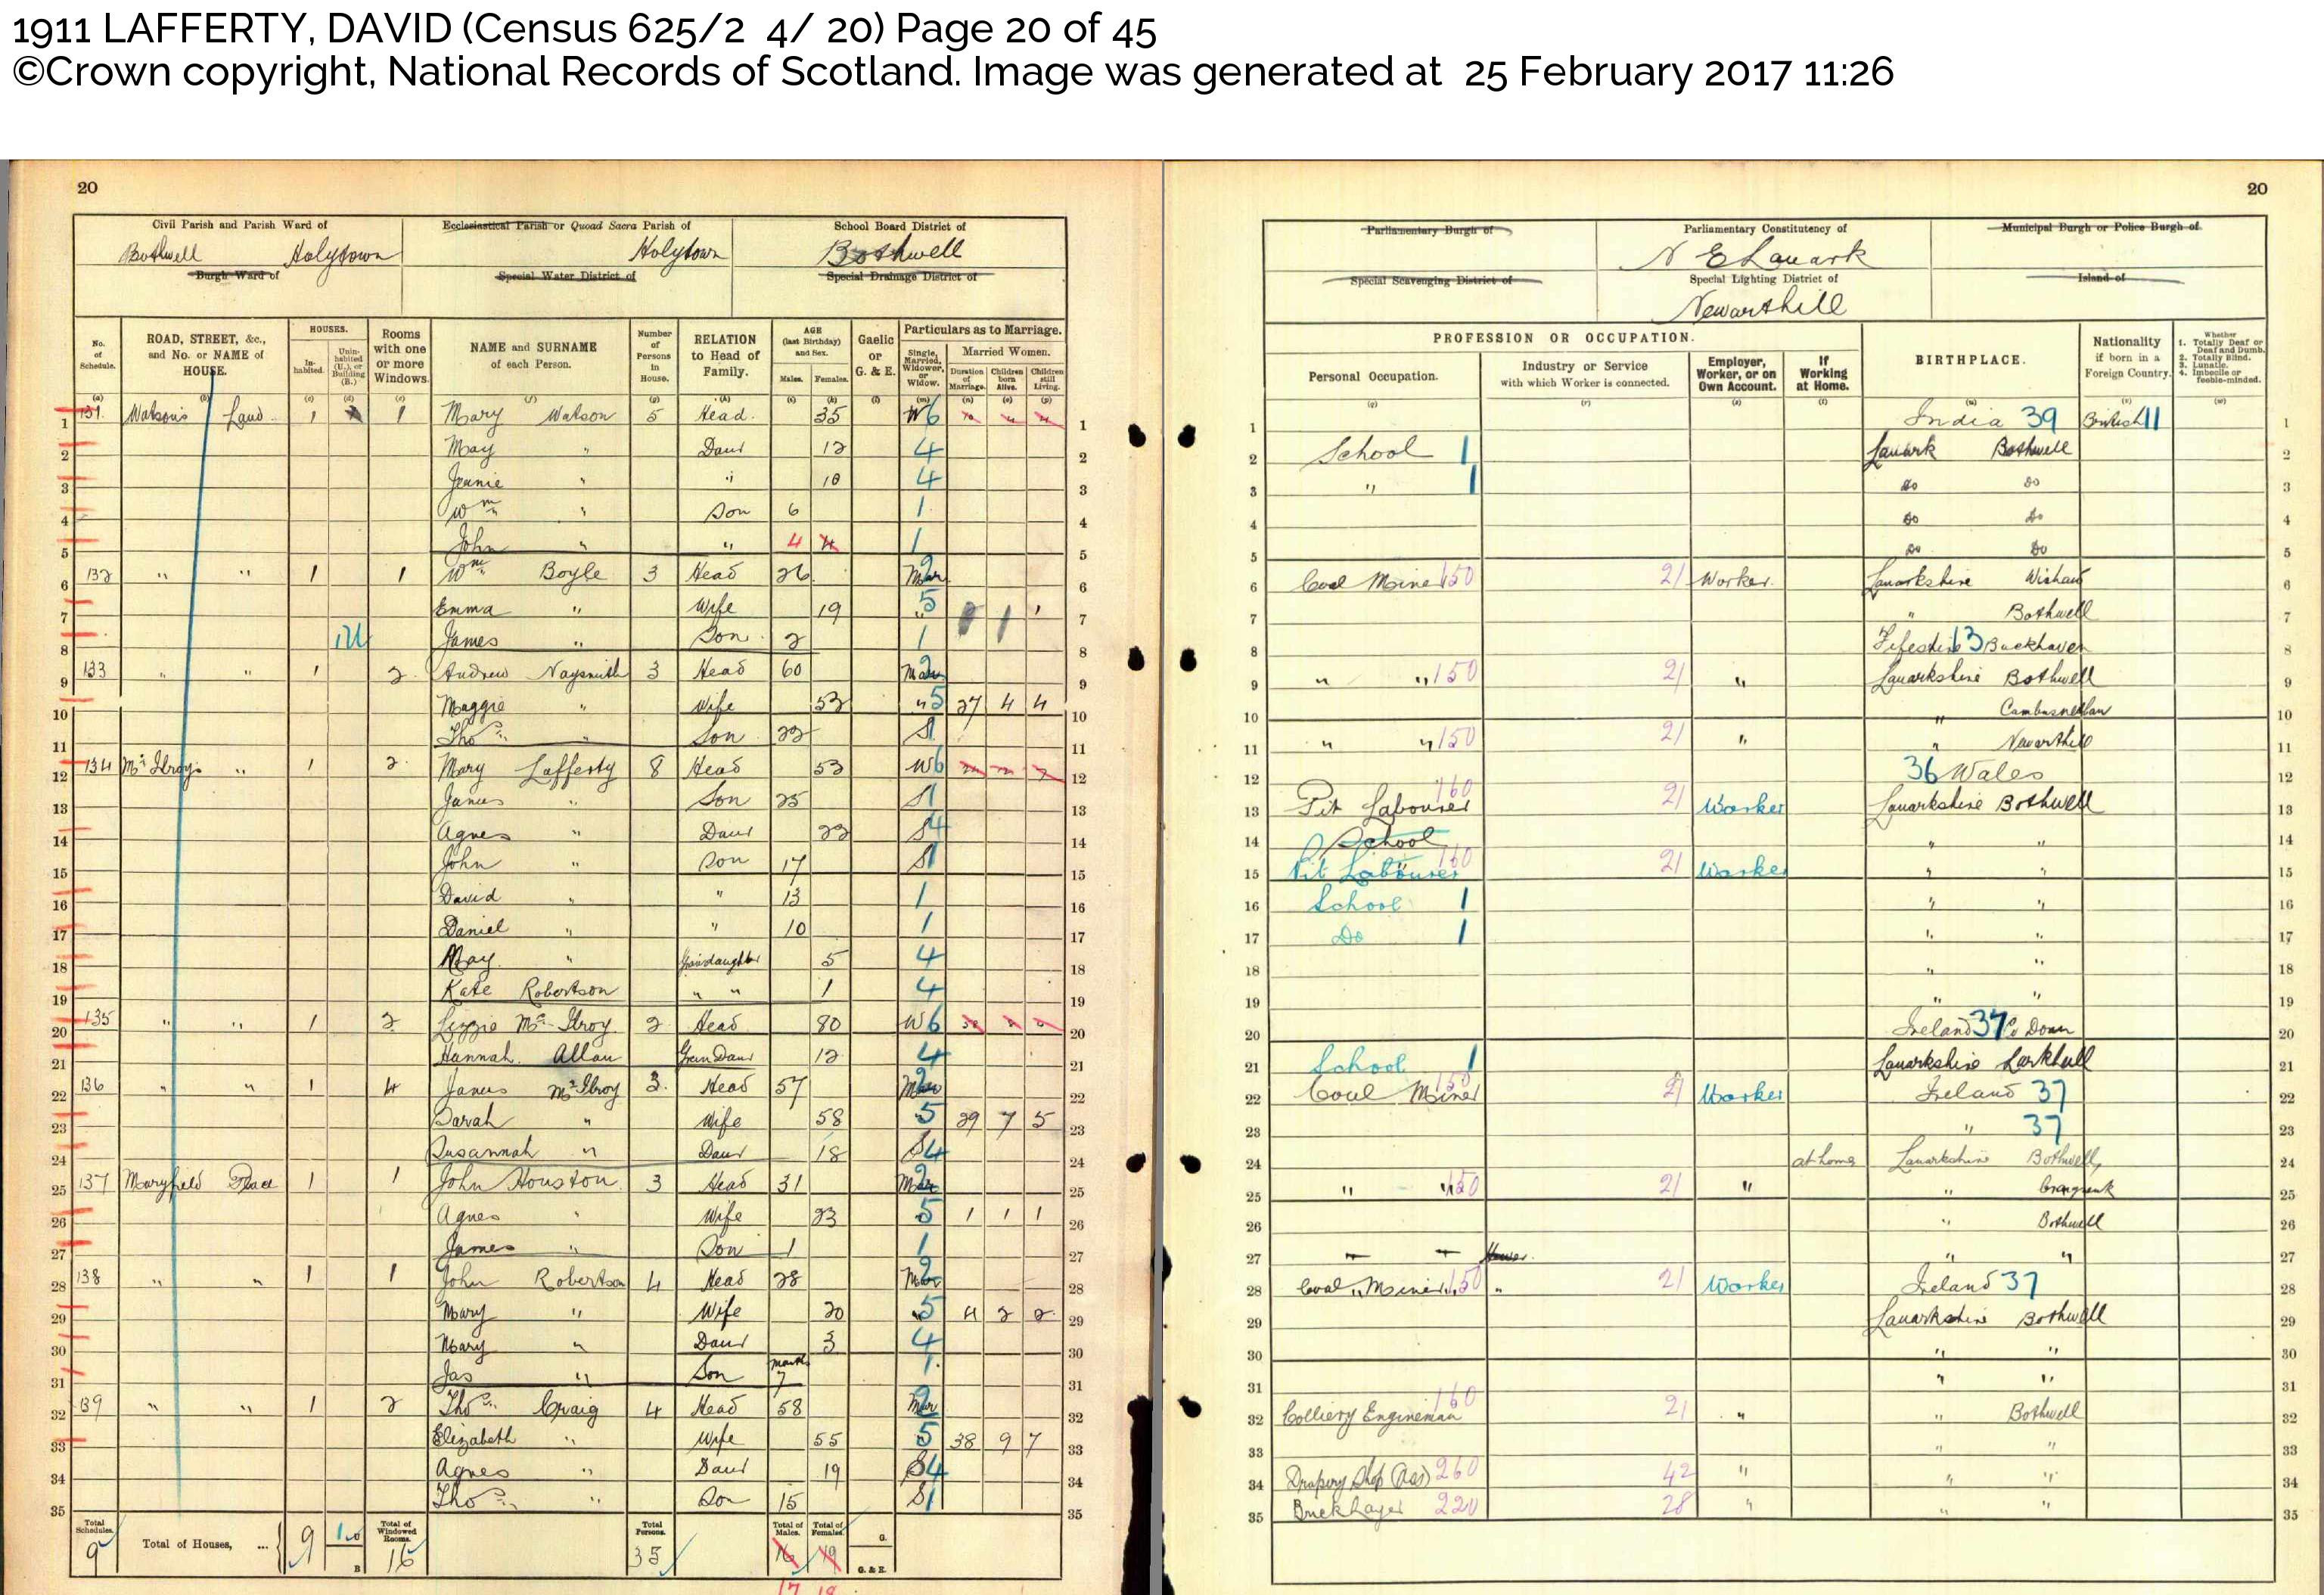 1911 LAFFERTY, DAVID (Census 625/2 4/ 20) Page 20 of 45
©Crown copyright, National Records of Scotland. Image was generated at 25 February 2017 11:26
20
Civil Parish and Parish Ward of
Bothwell Holytown
Burgh Ward of
Ecclesiastical Parish or Quoad Sacra Parish of
Holytown
Special Water District of
School Board District of
Bothwell
Special Drainage District of
No. of Schedule.
ROAD, STREET, &c., and No. or NAME of HOUSE.
HOUSES.
Inhabited.
Uninhabited (U.), or Building (B.)
Rooms with one or more Windows.
NAME and SURNAME of each Person.
Number of Persons in House.
RELATION to Head of Family.
AGE (last Birthday) and Sex.
Males. Females.
Gaelic or G. & E.
Particulars as to Marriage.
Single, Married, Widower, or Widow.
Married Women.
Duration of Marriage. Children born Alive. Children still Living.
1 131 Watson's Land 1 1 Mary Watson 5 Head 35 W 6 1
2 May " Daur 12 4 2
3 Jeannie " " 10 4 3
4 Wm " Son 6 1 4
5 John " " 4 1 5
6 132 " " 1 1 Wm Boyle 3 Head 26 Mar 2 6
7 Emma " Wife 19 " 5 1 1 7
8 1U James " Son 2 1 8
9 133 " " 1 2 Andrew Naysmith 3 Head 60 Mar 2 9
10 Maggie " Wife 53 " 5 27 4 4 10
11 Thos " Son 22 S 1 11
12 134 McIlroy's " 1 2 Mary Lafferty 8 Head 53 W 6 12
13 James " Son 25 S 1 13
14 Agnes " Daur 22 S 4 14
15 John " Son 17 S 1 15
16 David " " 13 1 16
17 Daniel " " 10 1 17
18 May " Grandaughter 5 4 18
19 Kate Robertson " " 1 4 19
20 135 " " 1 2 Lizzie McIlroy 2 Head 80 W 6 20
21 Hannah Allan Gran Daur 12 4 21
22 136 " " 1 4 James McIlroy 3 Head 57 Mar 2 22
23 Sarah " Wife 58 5 29 7 5 23
24 Susannah " Daur 18 S 4 24
25 137 Maryfield Place 1 1 John Houston 3 Head 31 Mar 2 25
26 Agnes " Wife 23 5 1 1 1 26
27 James " Son 1 1 27
28 138 " " 1 1 John Robertson 4 Head 28 Mar 2 28
29 Mary " Wife 20 " 5 4 2 2 29
30 Mary " Daur 3 4 30
31 Jas " Son Months 7 1 31
32 139 " " 1 2 Thos Craig 4 Head 58 Mar 2 32
33 Elizabeth " Wife 55 5 38 9 7 33
34 Agnes " Daur 19 S 4 34
35 Thos " Son 15 S 1 35
Total Schedules. 9 Total of Houses, ... 9 B Total of Windowed Rooms. 16 Total Persons. 35 Total of Males. 16 Total of Females. 19 G. G. & E.
17 18
20
Parliamentary Burgh of
Parliamentary Constitutency of
N E Lanark
Municipal Burgh or Police Burgh of
Special Scavenging District of
Special Lighting District of
Newarthill
Island of
PROFESSION OR OCCUPATION.
Personal Occupation.
Industry or Service with which Worker is connected.
Employer, Worker, or on Own Account.
If Working at Home.
BIRTHPLACE.
Nationality if born in a Foreign Country.
Whether
1. Totally Deaf or Deaf and Dumb.
2. Totally Blind.
3. Lunatic.
4. Imbecile or feeble-minded.
1 India 39 British 11 1
2 School 1 Lanark Bothwell 2
3 " 1 do do 3
4 do do 4
5 do do 5
6 Coal Miner 150 21 Worker Lanarkshire Wishaw 6
7 " Bothwell 7
8 Fifeshire 13 Buckhaven 8
9 " " 150 21 " Lanarkshire Bothwell 9
10 " Cambusnethan 10
11 " " 150 21 " " Newarthill 11
12 36 Wales 12
13 Pit Labourer 160 21 Worker Lanarkshire Bothwell 13
14 School " " 14
15 Pit Labourer 160 21 Worker " " 15
16 School 1 " " 16
17 Do 1 " " 17
18 " " 18
19 " " 19
20 Ireland 37 Co Down 20
21 School 1 Lanarkshire Larkhall 21
22 Coal Miner 150 21 Worker Ireland 37 22
23 " 37 23
24 at home Lanarkshire Bothwell 24
25 " " 150 21 " " 25
26 " Bothwell 26
27 " " 27
28 Coal Miner 150 " 21 Worker Ireland 37 28
29 Lanarkshire Bothwell 29
30 " " 30
31 " " 31
32 Colliery Engineman 160 21 " " Bothwell 32
33 " " 33
34 Drapery Shop (Ass) 260 42 " " " 34
35 Brick Layer 220 28 " " " 35